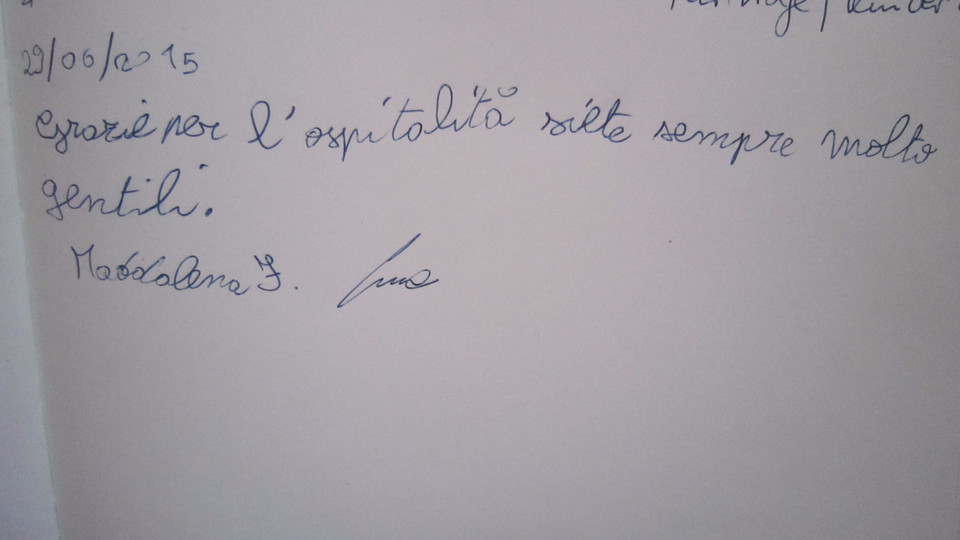 29/06/2015
Grazie per l'ospitalità siete sempre molto
gentili.
Maddalena